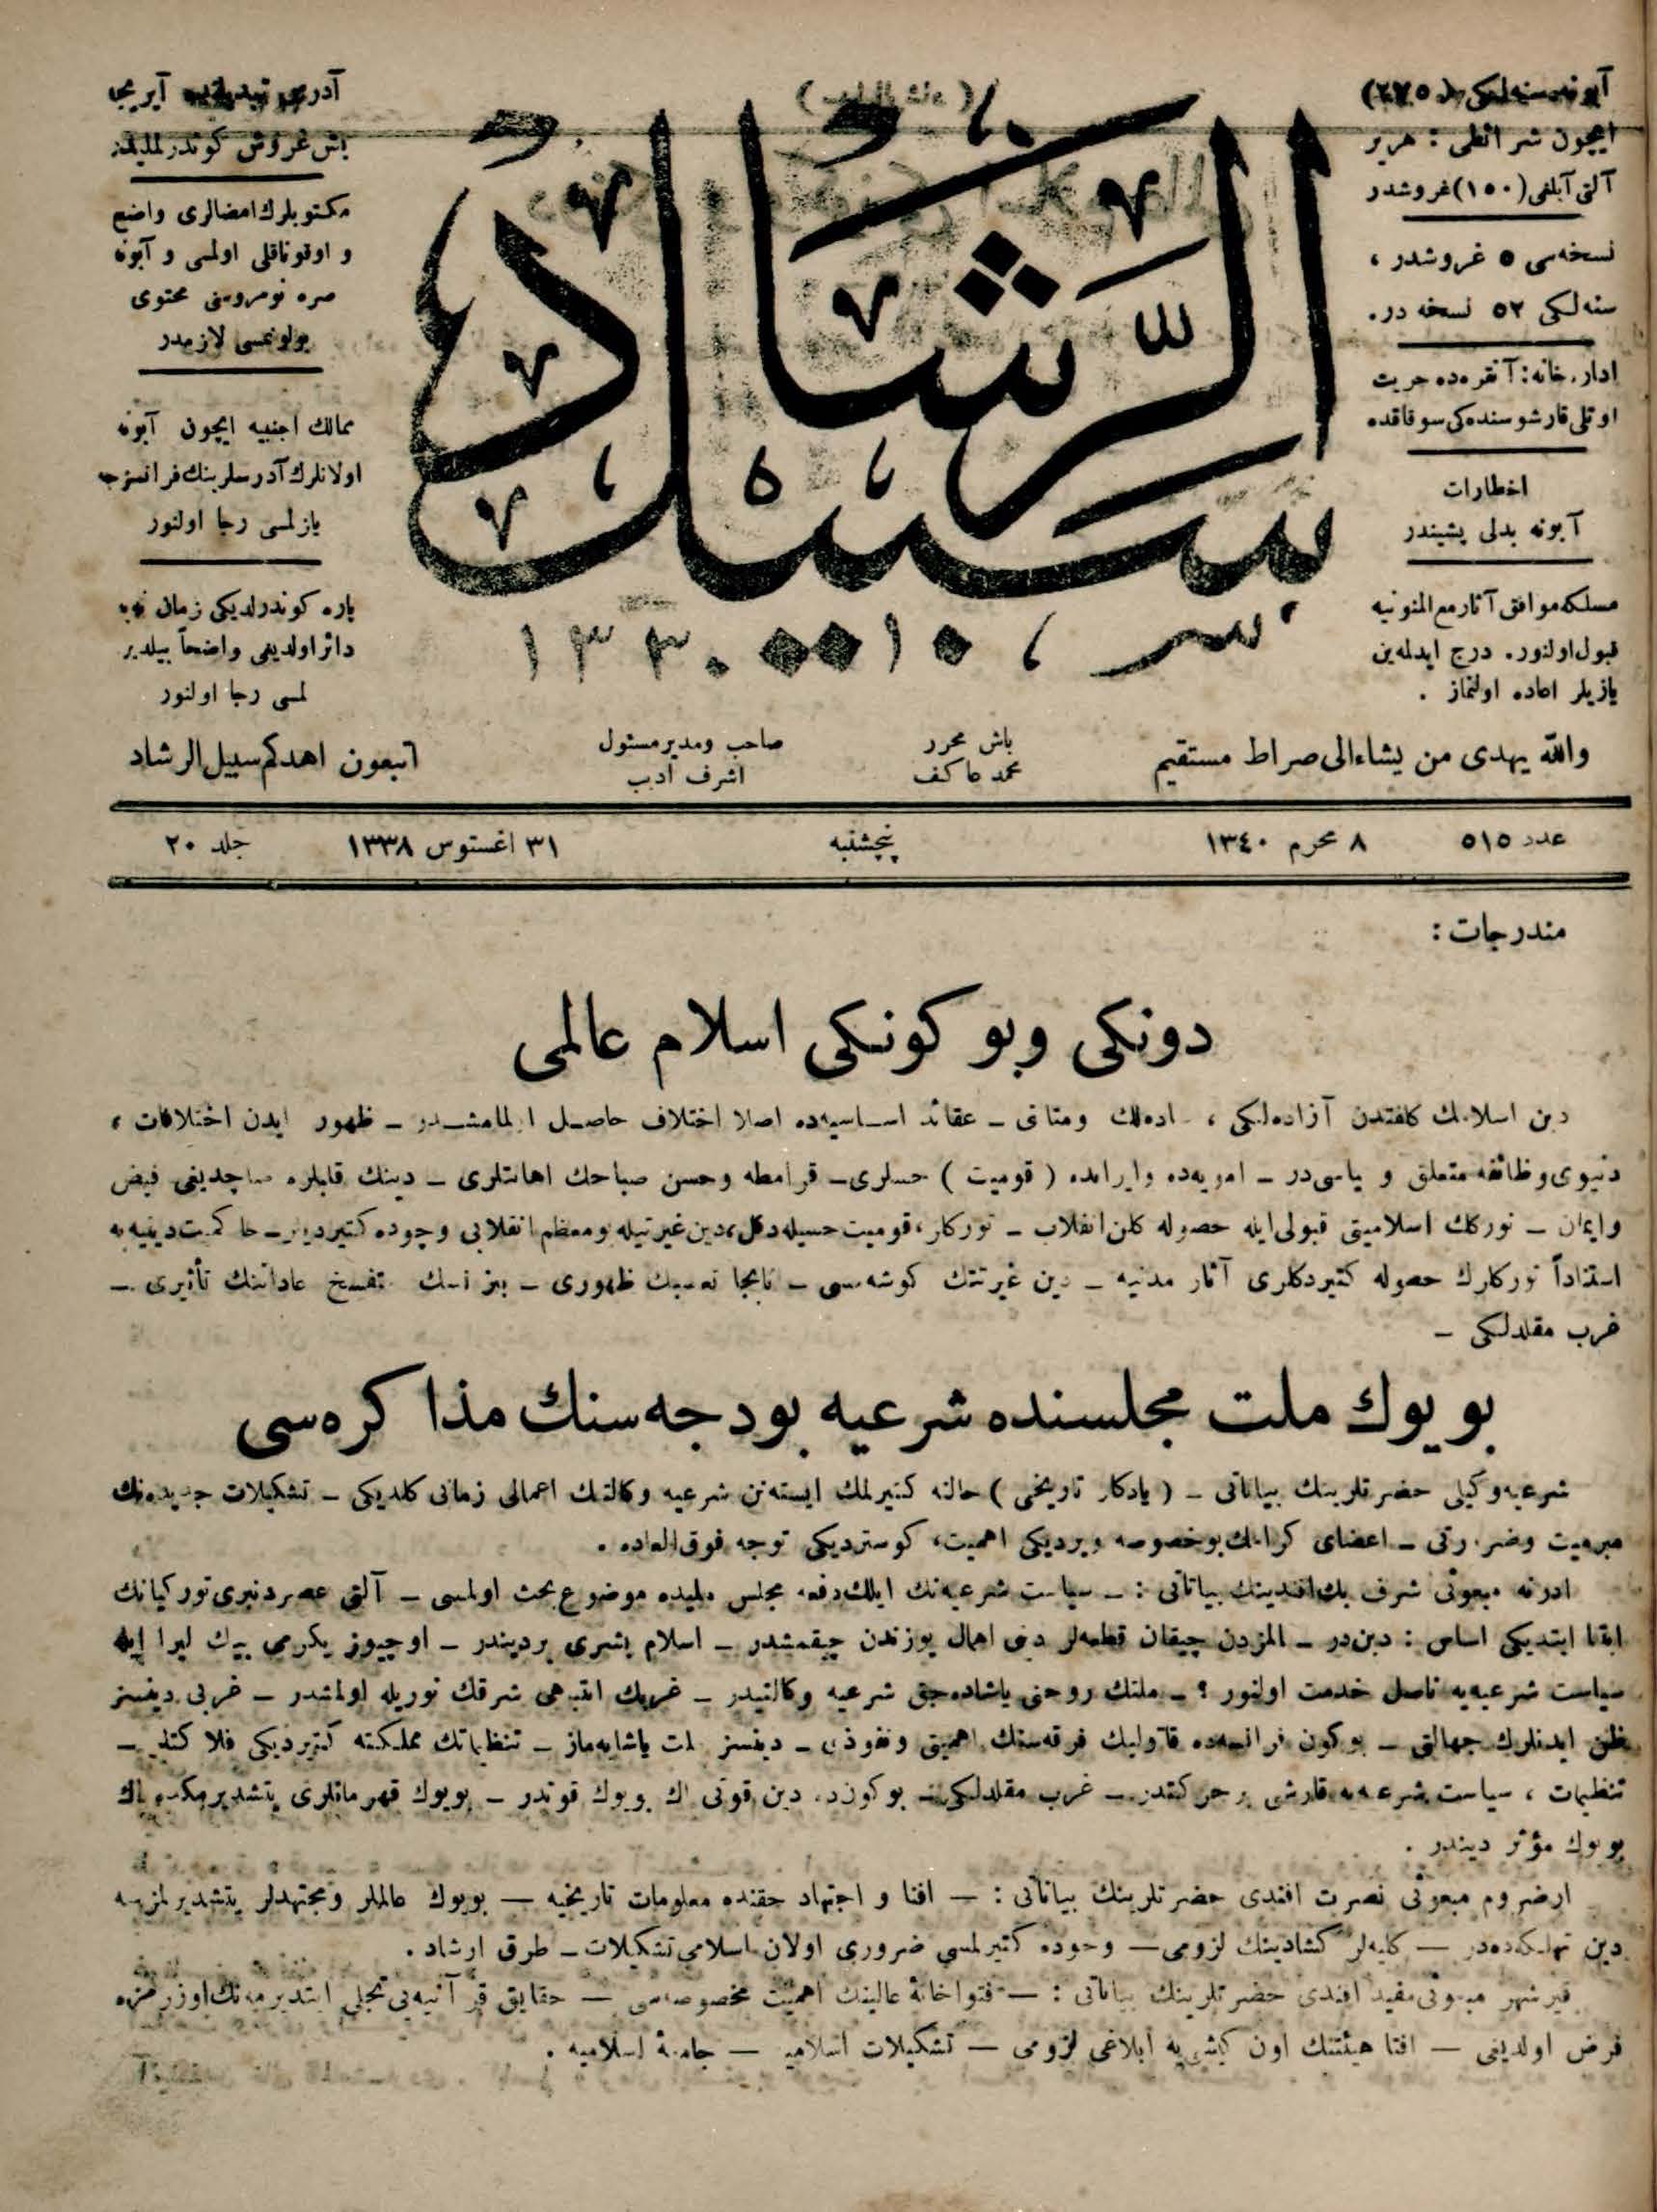 آبونه سنه‌لکی (۲۷۵)
ایچون شرائطی : هر یر
آلتی آیلغی (۱۵۰) غروشدر
نسخه‌سی ۵ غروشدر ،
سنه‌لکی ۵۲ نسخه در.
اداره خانه : آنقره‌ده حریت
اوتلی قارشوسنده‌کی سوقاقده
اخطارات
آبونه بدلی پشیندر
مسلکه موافق آثار مع الممنونیه
قبول اولنور. درج ایدلمه‌ین
یازیلر اعاده اولنماز .
سبیل الرشاد
۱۳۳۰
آدرس تبدیلنده آیریجه
بش غروش کوندرلملیدر
مکتوبلرك امضالری واضح
و اوقوناقلی اولمسی و آبونه
صره نومروسنی محتوی
بولونمسی لازمدر
ممالك اجنبیه ایچون آبونه
اولانلرك آدرسلرینك فرانسزجه
یازلمسی رجا اولنور
پاره کوندرلدیکی زمان نه‌یه
دائر اولدیغی واضحاً بیلدیر
لمسی رجا اولنور
والله یهدی من یشاء الی صراط مستقیم
باش محرر
محمد عاکف
صاحب ومدیر مسئول
اشرف ادیب
اتبعون اهدکم سبیل الرشاد
عدد ۵۱۵ ۸ محرم ۱۳٤۰ پنچشنبه ۳۱ اغستوس ۱۳۳۸ جلد ۲۰
مندرجات :
دونکی وبو کونکی اسلام عالمی
دین اسلامك کلفتدن آزاده‌لکی ، ساده‌لك ومتانتی ـ عقائد اساسیه‌ده اصلا اختلاف حاصل اولمامشدر ـ ظهور ایدن اختلافات ،
دنیوی وظائفه متعلق و سیاسی‌در ـ امویه‌ده وایرانده ( قومیت ) حسلری ـ قرامطه وحسن صباحك اهانتلری ـ دینك قلبلره صاچدیغی فیض
وایمان ـ تورکك اسلامیتی قبولی ایله حصوله کلن انقلاب ـ تورکلر ، قومیت حسیله دکل ، دین غیرتیله ومعظم انقلابی وجوده کتیردیلر ـ حاکمیت دینیه‌یه
استناداً تورکلرك حصوله کتیردکلری آثار مدنیه ـ دین غیرتنك کوشه‌مسی ـ نابجا تعصبك ظهوری ـ بیزانسك تفسخ عاداتنك تأثیری ـ
غرب مقلدلکی ـ
بویوك ملت مجلسنده شرعیه بودجه‌سنك مذاکره‌سی
شرعیه وکیلی حضرتلرینك بیاناتی ـ ( یادکار تاریخی ) حالنه کتیرلمك ایسته‌نن شرعیه وکالتنك اعمالی زمانی کلدیکی ـ تشکیلات جدیده‌نك
مبرمیت وضرورتی ـ اعضای کرامك بو خصوصه ویردیکی اهمیت، کوستردیکی توجه فوق العاده .
ادرنه مبعوثی شرف بك افندینك بیاناتی : ـ سیاست شرعیه‌نك ایلك دفعه مجلس ملیده موضوع بحث اولمسی ـ آلتی عصردنبری تورکیانك
ابتنا ایتدیکی اساس : دین‌در ـ المزدن چیقان قطعه‌لر دخی اهمال یوزندن چیقمشدر ـ اسلام بشری بر دیندر ـ اوچیوز یکرمی بیك لیرا ایله
سیاست شرعیه‌یه ناصل خدمت اولنور ؟ ـ ملتك روحنی یاشاده‌جق شرعیه وکالتیدر ـ غربك انتباهی شرقك نوریله اولمشدر ـ غربی دینسز
ظن ایدنلرك جهالتی ـ بوکون فرانسه‌ده قاتولیك فرقه‌سنك اهمیتی ونفوذی ـ دینسز ملت یاشایه‌ماز ـ تنظیماتك مملکته کتیردیکی فلاکتلر ـ
تنظیمات ، سیاست شرعیه‌یه قارشی بر حرکتدر ـ غرب مقلدلکی ـ بوکون ده دین قوتی اك بویوك قوتدر ـ بویوك قهرمانلری یتشدیرمکده اك
بویوك مؤثر دیندر .
ارضروم مبعوثی نصرت افندی حضرتلرینك بیاناتی : — افتا و اجتهاد حقنده معلومات تاریخیه — بویوك عالملر ومجتهدلر یتشدیرلمزسه
دین تهلکه‌ده‌در — کلیه‌لر کشادینك لزومی — وجوده کتیرلمسی ضروری اولان اسلامی تشکیلات ـ طرق ارشاد .
قیرشهر مبعوثی مفید افندی حضرتلرینك بیاناتی : — فتواخانۀ عالینك اهمیت مخصوصه‌سی — حقایق قرآنیه‌یی تجلی ایتدیرمه‌نك اوزرمزه
فرض اولدیغی — افتا هیئتنك اون کیشی‌یه ابلاغی لزومی — تشکیلات اسلامیه — جامعۀ اسلامیه .